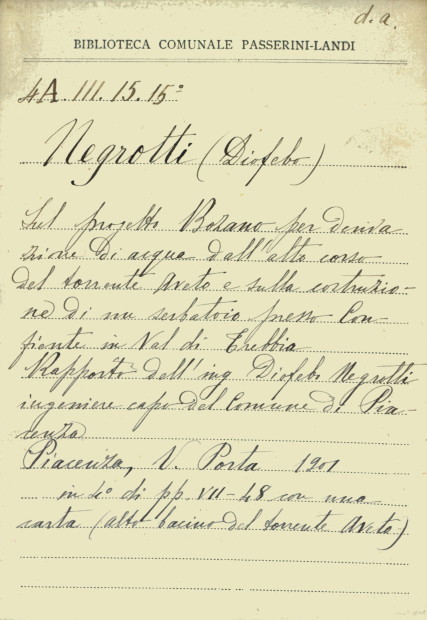 d. a.
BIBLIOTECA COMUNALE PASSERINI-LANDI
4A. III. 15. 15°
Negrotti (Diofebo)
Sul progetto Bozano per deriva
zione di acqua dall'alto corso
del torrente Aveto e sulla costruzio-
ne di un serbatoio presso Con-
fiente in Val di Trebbia
Rapporto dell'ing Diofebo Negrotti
ingeniere capo del Comune di Pia-
cenza
Piacenza, V. Porta 1901
in 4° di pp. VII-48 con una
carta (alto bacino del torrente Aveto)